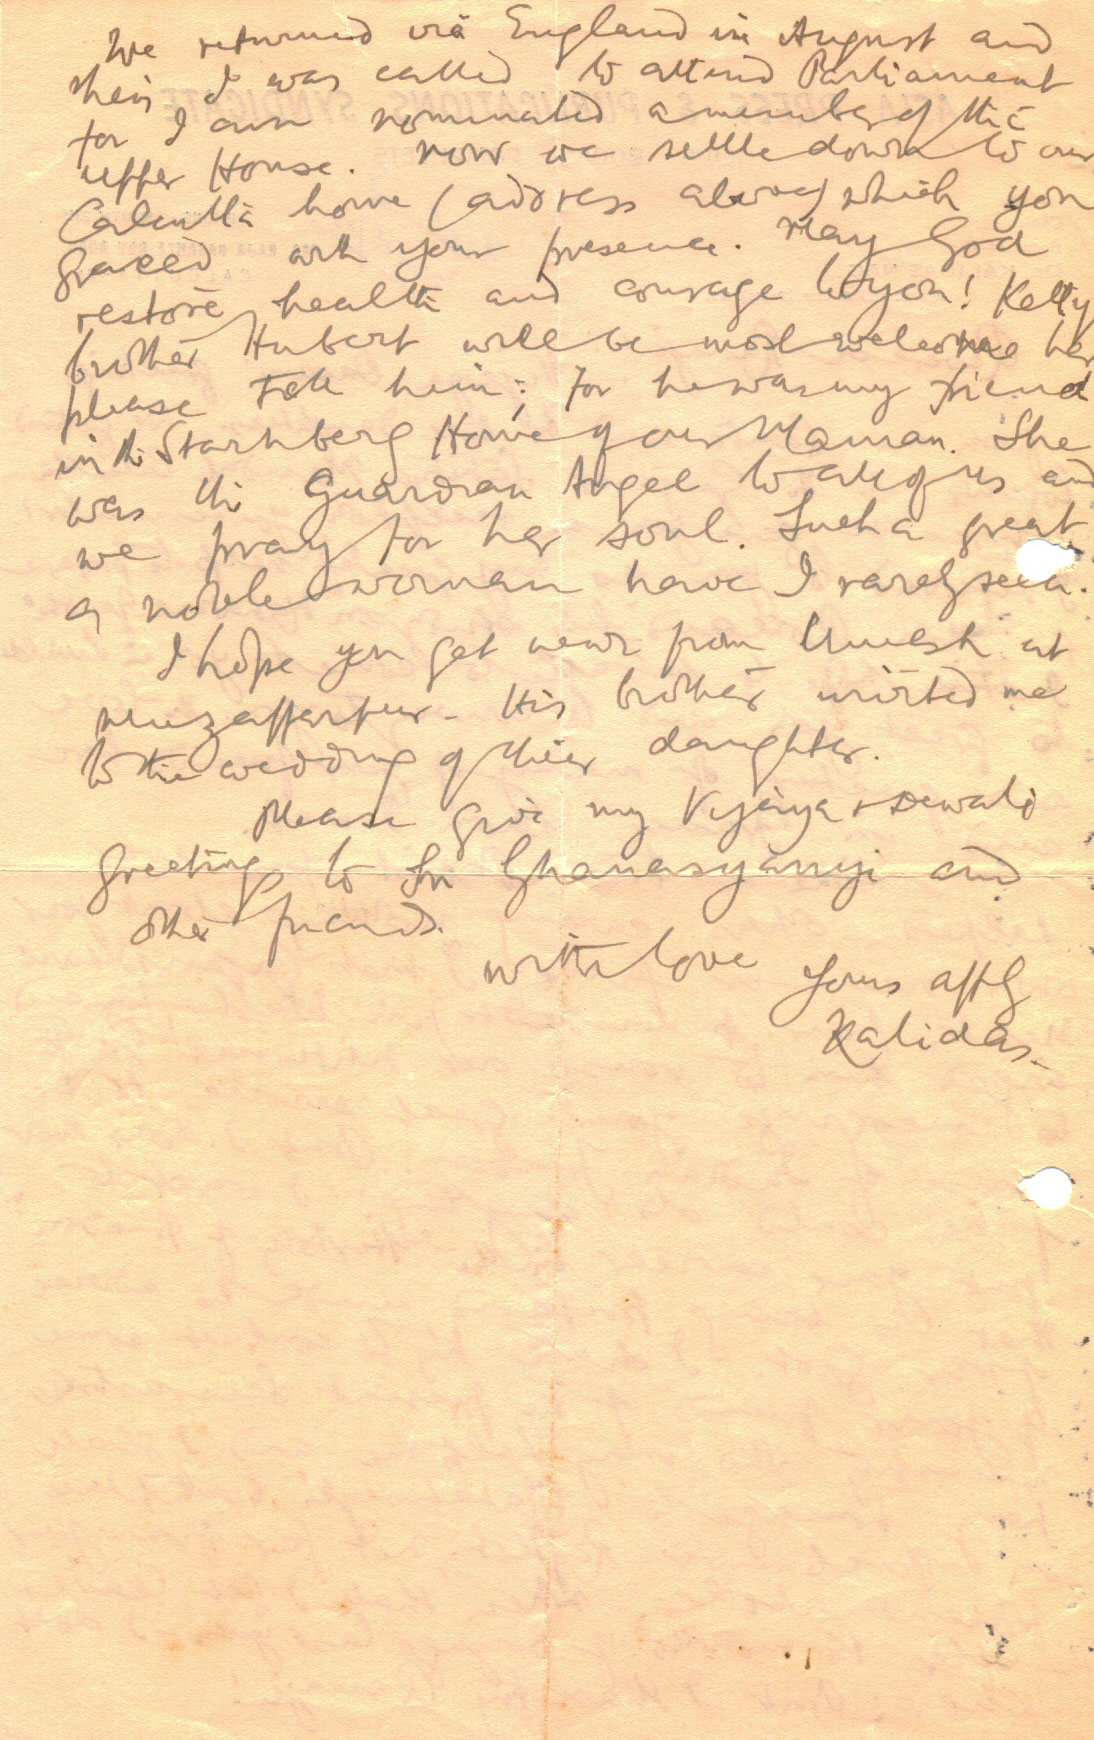 We returned via England in August and
then I was called to attend Parliament
for I am nominated a member of the
upper House. Now we settle down to our
Calcutta home (address above) which you
graced with your presence. May God
restore health and courage to you! Kelly
brother Hubert will be most welcome her
please tell him; for he was my friend
in the Starnberg Home of our Maman. She
was the Guardian Angel to all of us and
we pray for her soul. Such a great
a noble woman have I rarely seen.
I hope you get news from Umesh at
Muzaffarpur - His brother invited me
to the wedding of their daughter.
Please give my Vijaya & Dewali
greetings to Sri Ghanasyamji and
other friends.
with love Yours affly
Kalidas.